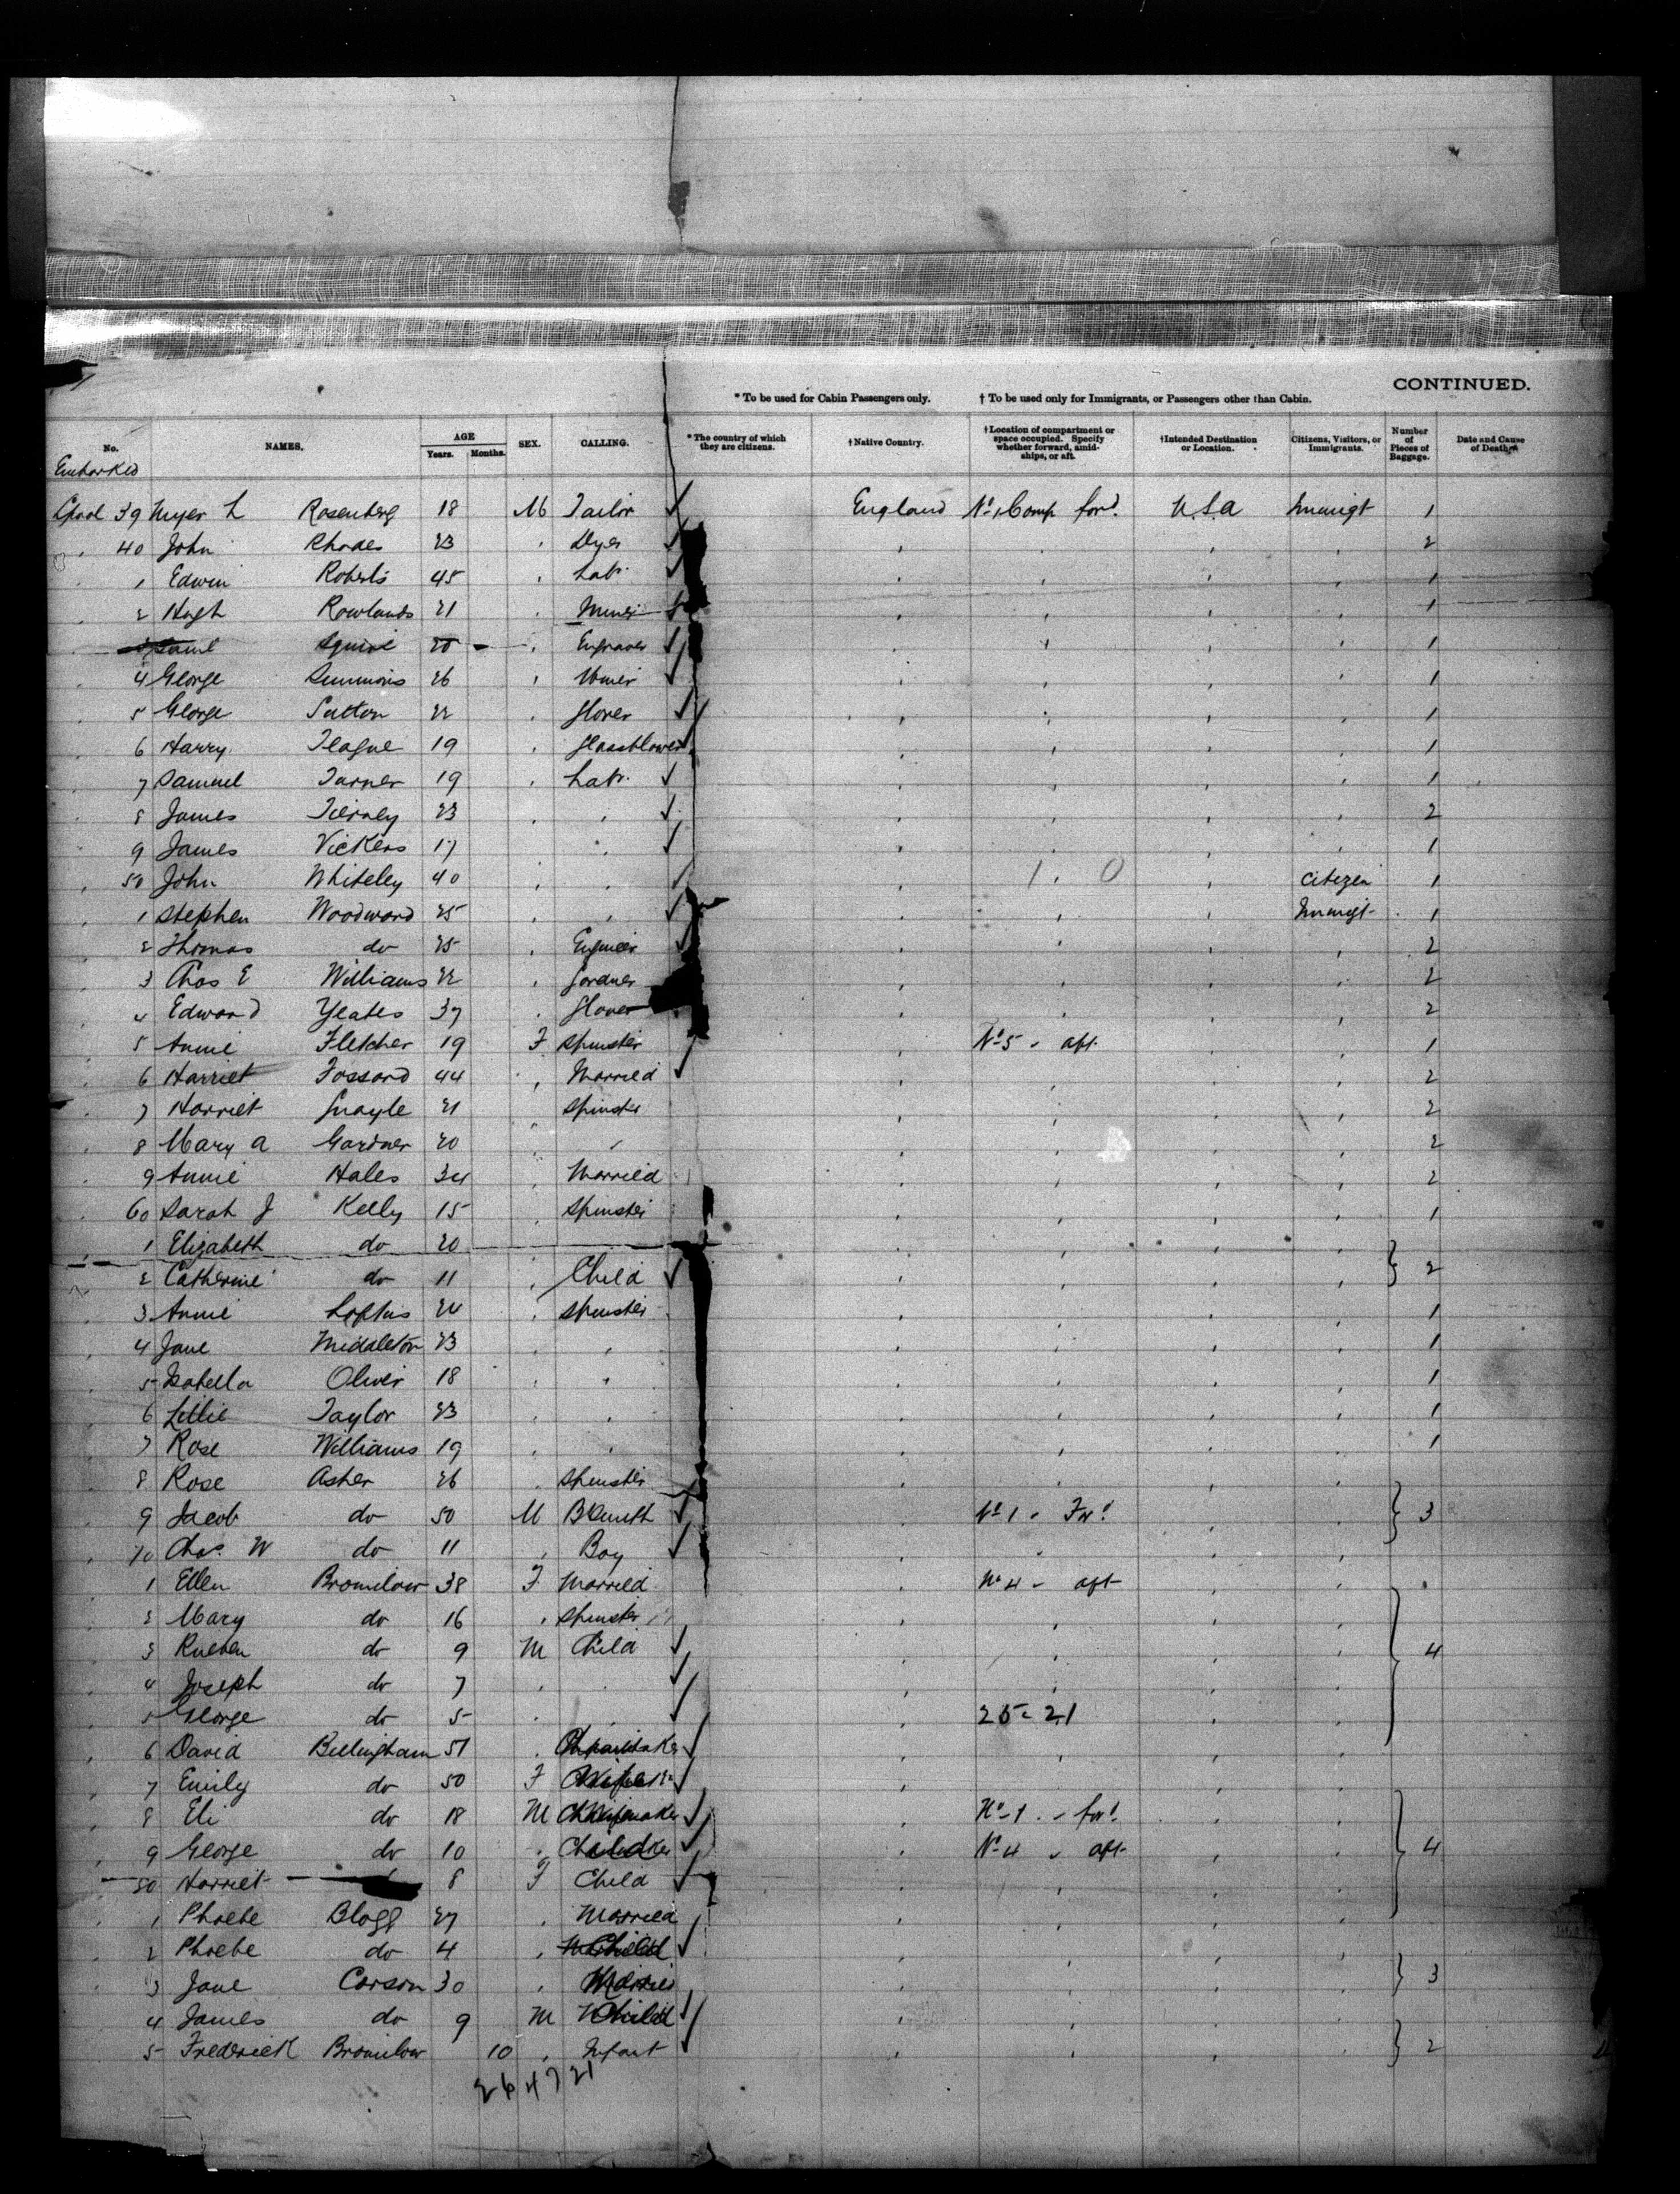 CONTINUED.
* To be used for Cabin Passengers only. † To be used only for Immigrants, or Passengers other than Cabin.
No. NAMES. AGE Years. Months. SEX. CALLING. * The country of which they are citizens. † Native Country. † Location of compartment or space occupied. Specify whether forward, amidships, or aft. † Intended Destination or Location. Citizens, Visitors, or Immigrants. Number of Pieces of Baggage. Date and Cause of Death.
Embarked
Lpool 39 Myer L Rosenberg 18 M Tailor England No 1 Comp ford. U.S.A Immigt 1
40 John Rhodes 23 " Dyer " " " " 2
1 Edwin Roberts 45 " Labr. " " " " 1
2 Hugh Rowlands 21 " Miner " " " " 1
Squire 20 " Engraver " " " " 1
4 George Simmons 26 " Miner " " " " 1
5 George Sutton 22 " Glover " " " " 1
6 Harry Teague 19 " Glassblower " " " " 1
7 Samuel Turner 19 " Labr. " " " " 1
8 James Tierney 23 " " " " " " 2
9 James Vickers 17 " " " " " 1
50 John Whiteley 40 " " " 1 . 0 " Citizen 1
1 Stephen Woodward 25 " " " " " Immigt 1
2 Thomas do 25 " Engineer " " " " 2
3 Chas E Williams 22 " Gardner " " " " 2
4 Edward Yeates 37 " Glover " " " " 2
5 Annie Fletcher 19 F Spinster " No 5 " aft " " 1
6 Harriet Fossard 44 " Married " " " " 2
7 Harriet Quayle 21 " Spinster " " " " 2
8 Mary A Gardner 20 " " " " " " 2
9 Annie Hales 34 " Married " " " " 2
60 Sarah J Kelly 15 " Spinster " " " " 1
1 Elizabeth do 20 " " " "
2 Catherine do 11 " Child " " " " 2
3 Annie Loftus 24 Spinster " " " " 1
4 Jane Middleton 23 " " " " " " 1
5 Isabella Oliver 18 " " " " " " 1
6 Lillie Taylor 23 " " " " " " 1
7 Rose Williams 19 " " " " " " 1
8 Rose Asher 26 " Spinster " " " "
9 Jacob do 50 M Bksmith " No 1 " Ford " " 3
70 Chas. W do 11 " Boy " " " "
1 Ellen Bromilow 38 F Married " No 4 " aft " "
2 Mary do 16 " Spinster " " " "
3 Rueben do 9 M Child " " " " 4
4 Joseph do 7 " " " " " "
5 George do 5 " " " 25-21 " "
6 David Billingham 51 " Chainmaker " " " "
7 Emily do 50 F Wife " " " "
8 Eli do 18 M Chainmaker " No 1 " ford " "
9 George do 10 " Child " No 4 " aft " " 4
80 Harriet 8 F Child " " " "
1 Phoebe Blogg 27 " Married " " " "
2 Phoebe do 4 " Child " " " "
3 Jane Corson 30 " Married " " " " 3
4 James do 9 M Child " " " "
5 Frederick Bromilow 10 " Infant " " " " 2
26 47 21